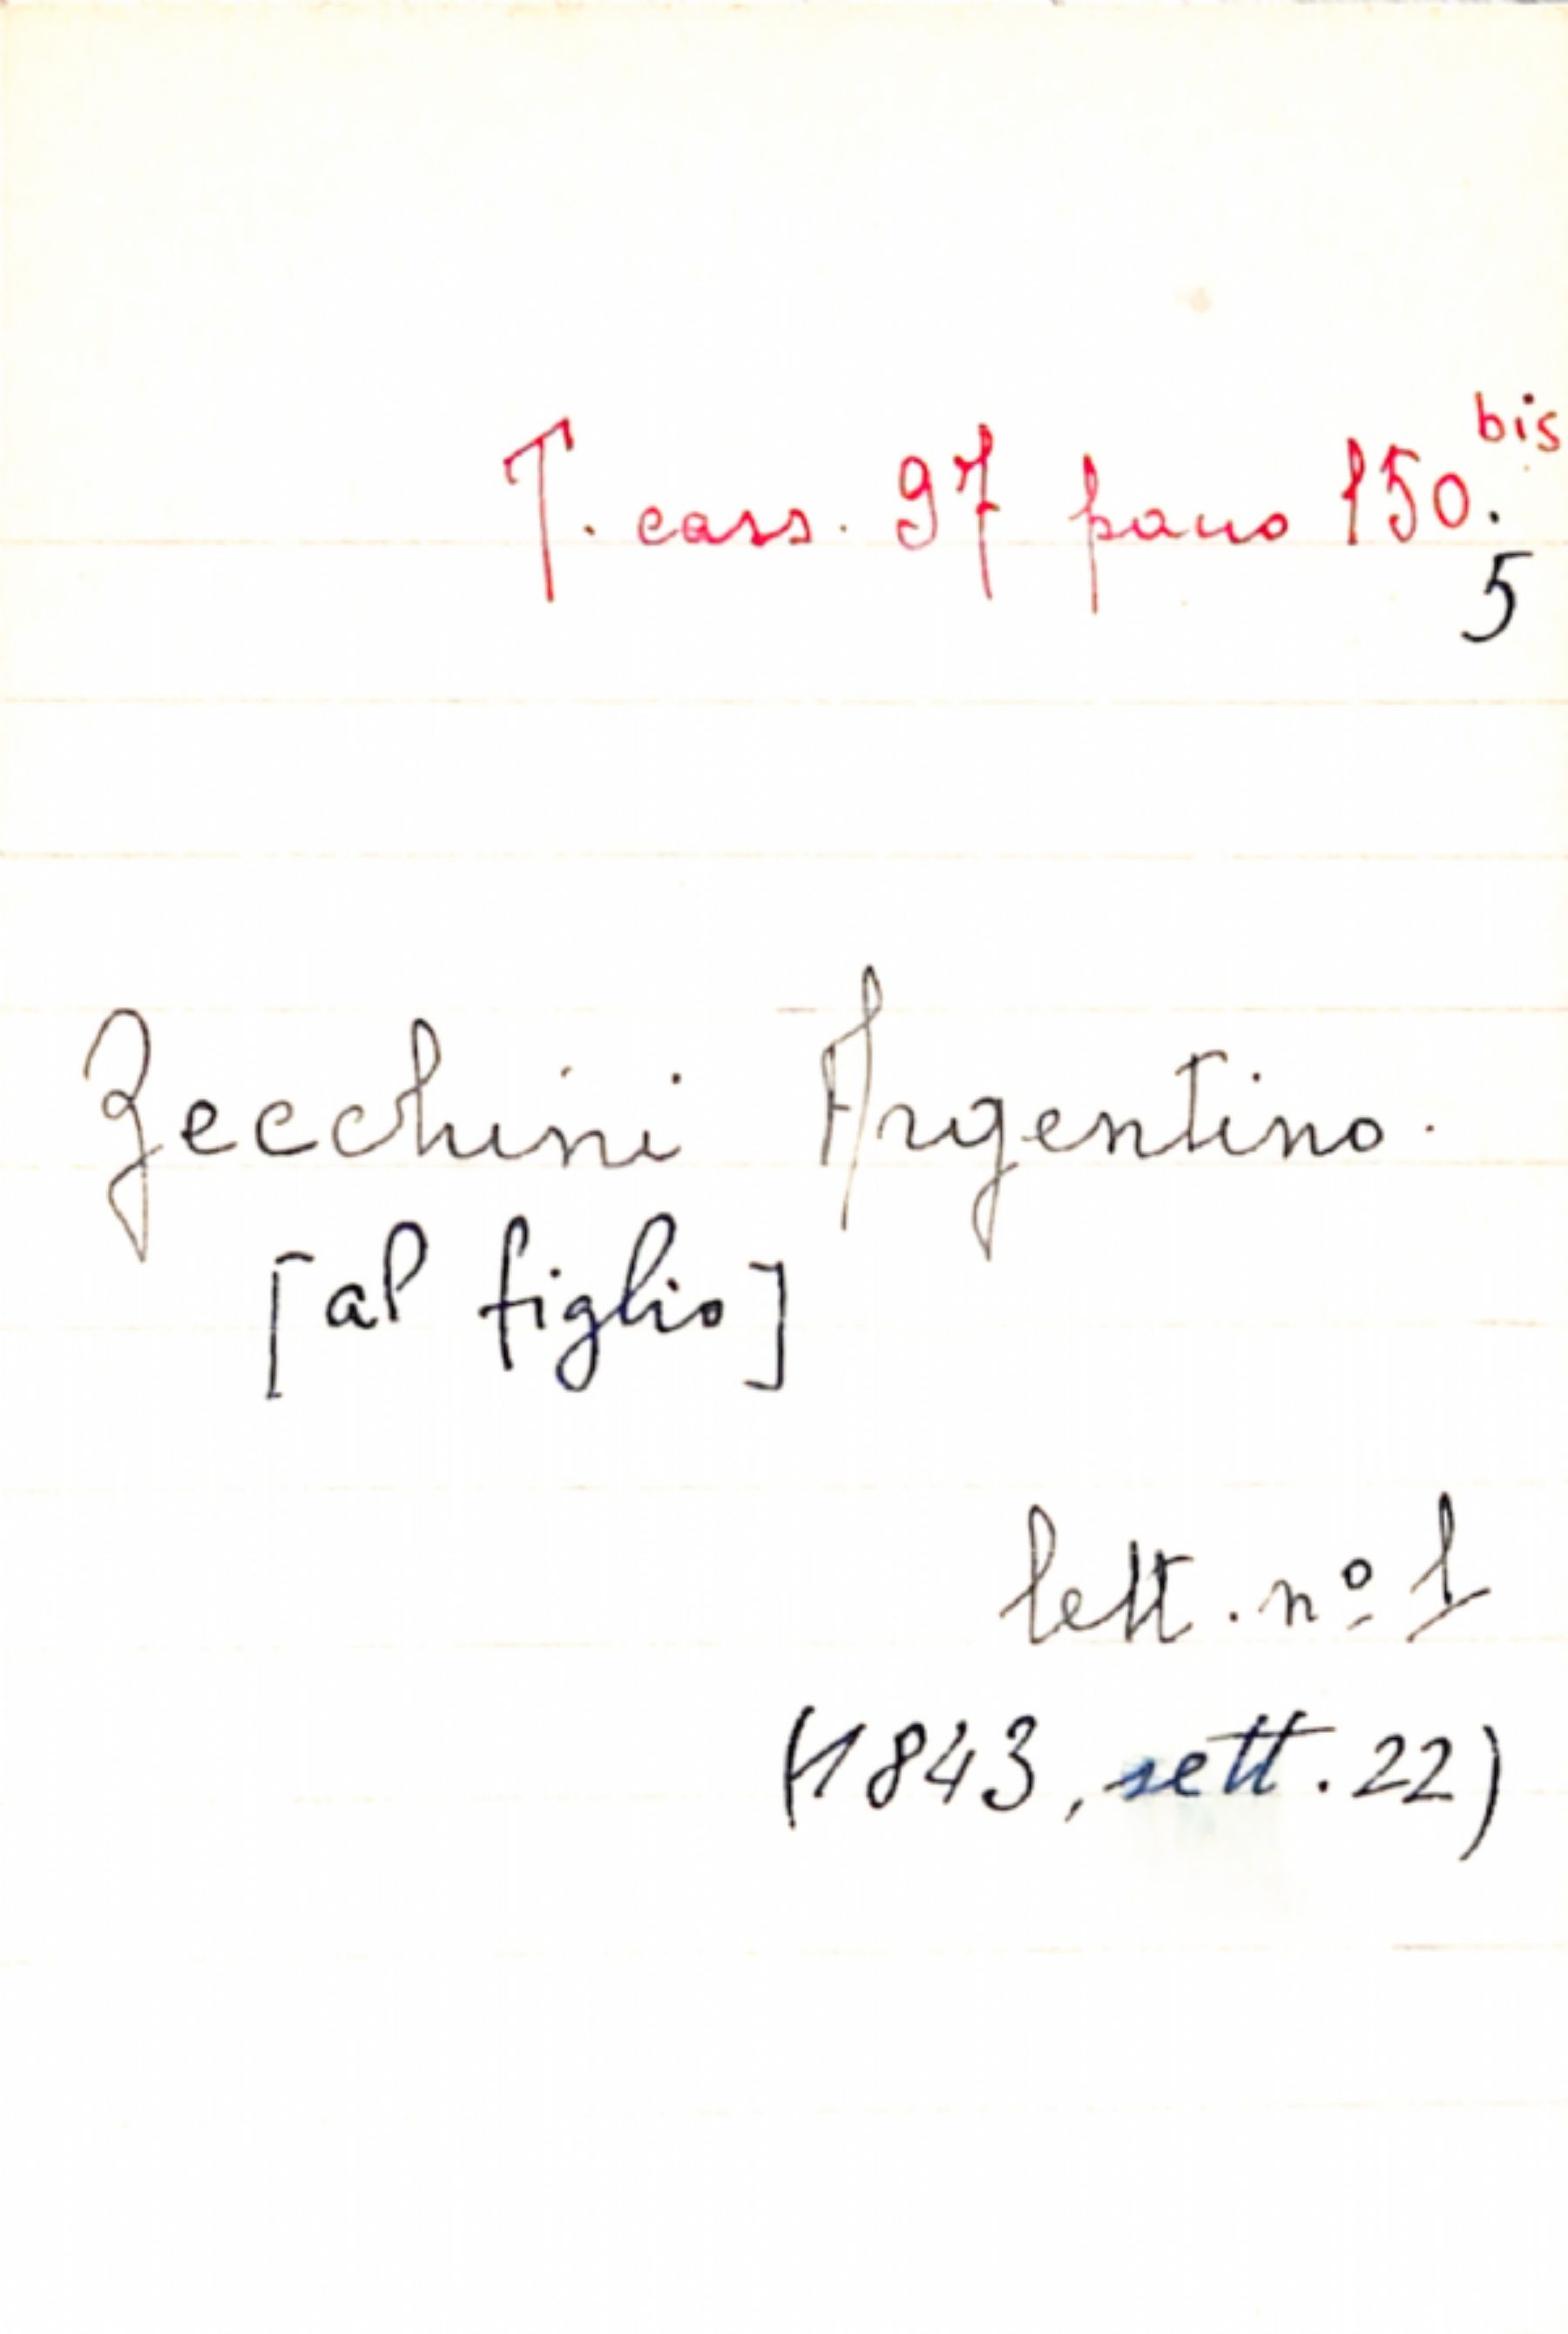 T. cass. 97 pacco 150. bis
5
Zecchini Argentino.
[al figlio]
lett. nº 1
(1843, sett. 22)